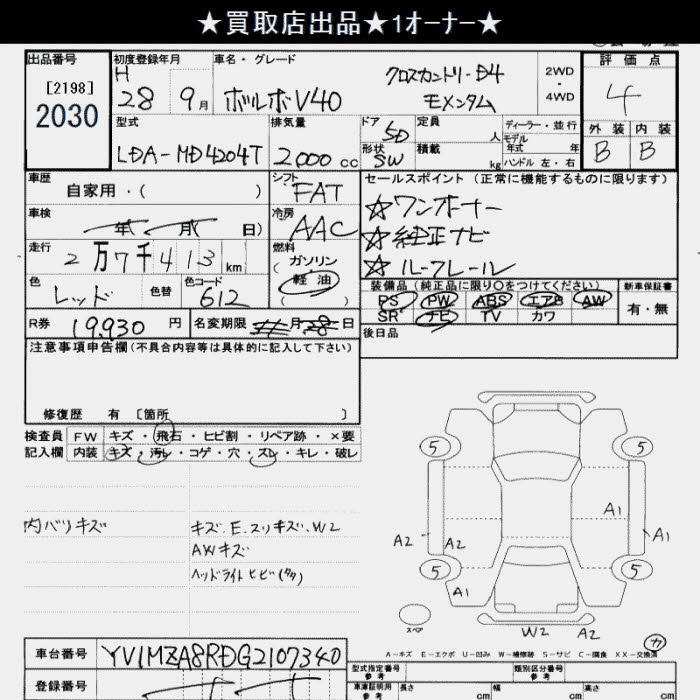 ★買取店出品★1オーナー★
出品番号
[2198]
2030
初度登録年月
H
28 9月
車名・グレード
ボルボV40
クロスカントリーD4
モメンタム
2WD
・
4WD
評価点
4
外装 内装
B B
型式
LDA-MD4204T
排気量
2000 cc
ドア 5D
形状 SW
定員 人
積載 kg
ディーラー・並行
モデル
年式 年
ハンドル 左・右
車歴
自家用・( )
シフト
FAT
セールスポイント (正常に機能するものに限ります)
☆ワンオーナー
☆純正ナビ
☆ルーフレール
車検
年 月 日)
冷房
AAC
走行
2万7千413 km
燃料
ガソリン
軽油
( )
色
レッド
色替
色コード
612
装備品 (純正品に限り○をつけてください)
PS PW ABS エアB AW
SR ナビ TV カワ
新車保証書
有・無
R券 19,930 円
名変期限 月 28日
後日品
注意事項申告欄 (不具合内容等は具体的に記入して下さい)
修復歴 有 [箇所 ]
検査員
記入欄
FW キズ・飛石・ヒビ割・リペア跡・×要
内装 キズ・汚レ・コゲ・穴・スレ・キレ・破レ
内バリキズ
キズ、E、スリキズ、W2
AWキズ
ヘッドライトヒビ(タタ)
5 5
A1
A2 A2 A1
5 5
A1
スペア
W2 A2
カ
A-キズ E-エクボ U-凹み W-補修跡 S-サビ C-腐食 XX-交換済
車台番号 YV1MZA8RDG2107340
登録番号
型式指定番号
参考
類別区分番号
参考
車庫証明用
参考
長さ cm
幅 cm
高さ cm